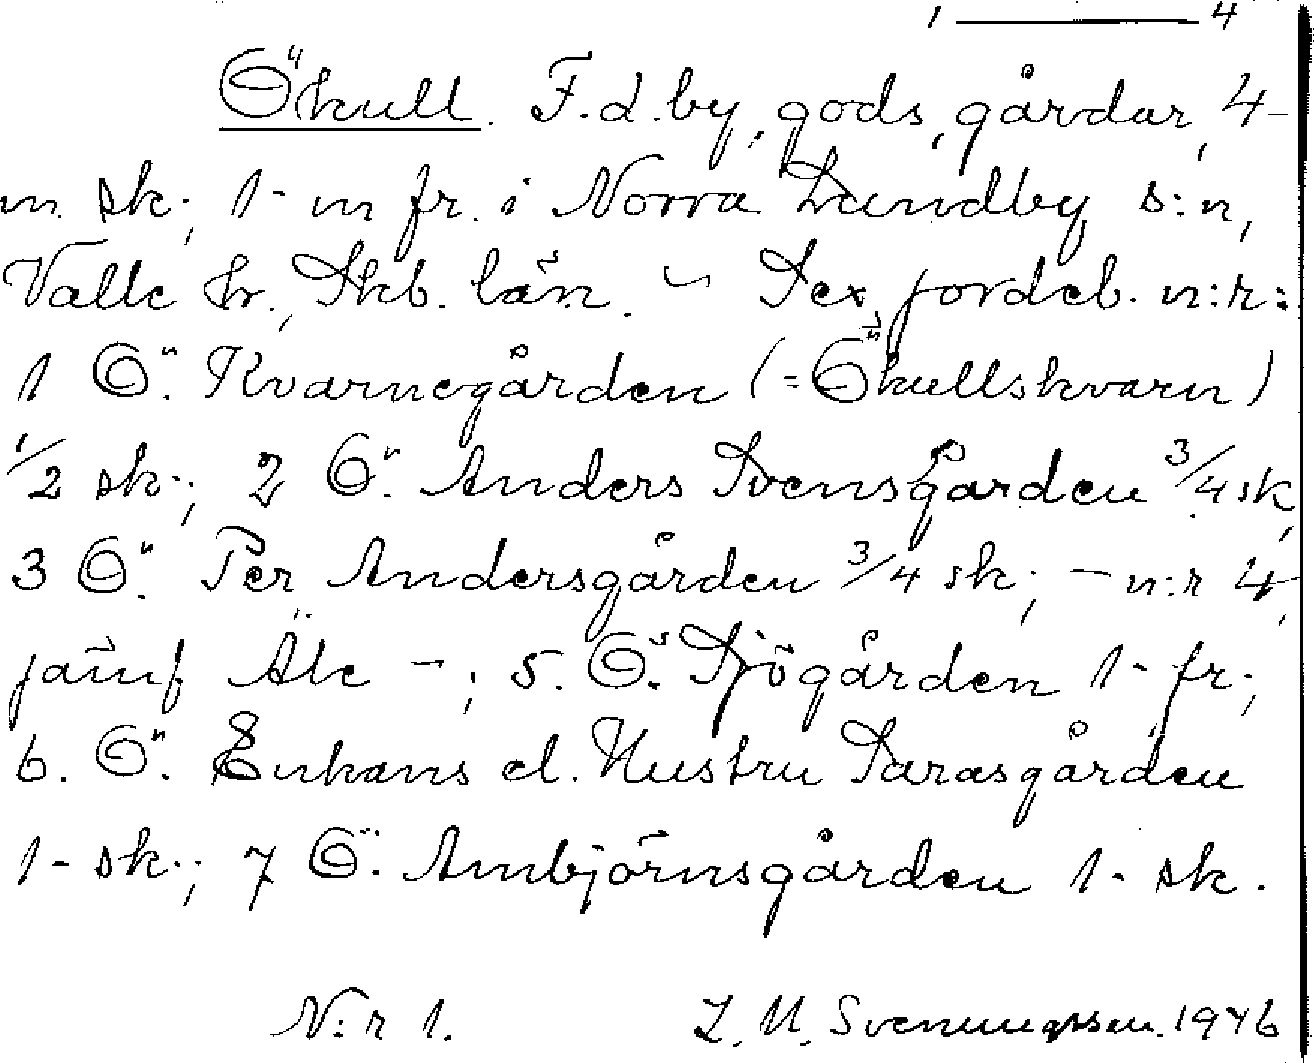 1 — 4
Ökull. F.d. by, gods, gårdar, 4-
m sk.; 1- m fr. i Norra Lundby s:n,
Valle hr., Skb. län. — Sex jordeb. n:r:
1 Ö. Kvarnegården (= Ökullskvarn)
1/2 sk.; 2 Ö. Anders Svensgården 3/4 sk,
3 Ö. Per Andersgården 3/4 sk.; — n:r 4,
jämf Äle —; 5. Ö. Sjögården 1- fr.;
6. Ö. Enkans el. Hustru Sarasgården
1- sk.; 7 Ö. Ambjörnsgården 1- sk.
N:r 1. L. M. Svenungsson. 1946